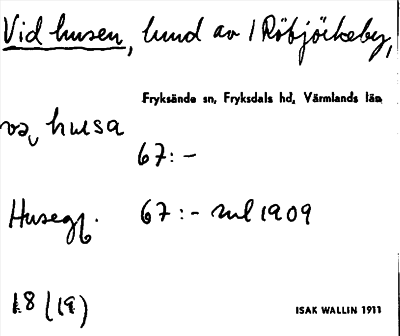 Vid husen, lund av 1 Röbjörkeby,
Fryksände sn, Fryksdals hd, Värmlands län
va, husa
67:-
Husegl. 67:- ml 1909
18 (19)
ISAK WALLIN 1911